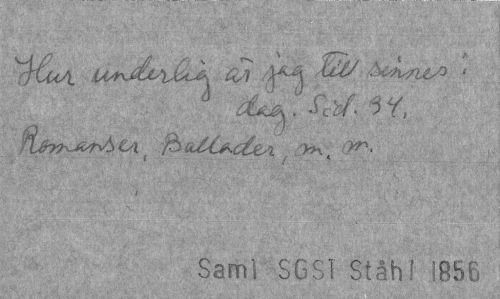 Hur underlig är jag till sinnes i
dag. Sid. 94.
Romanser, Ballader, m. m.
Saml SGS1 Ståhl 1856